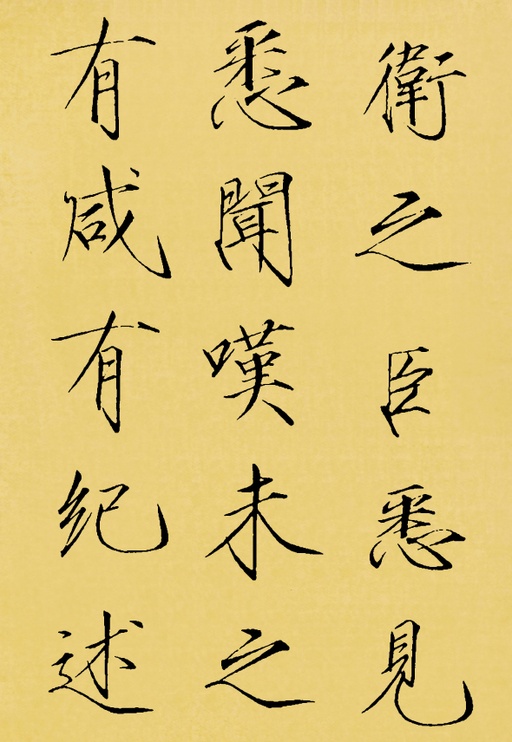 衛之臣悉見
悉聞嘆未之
有咸有纪述